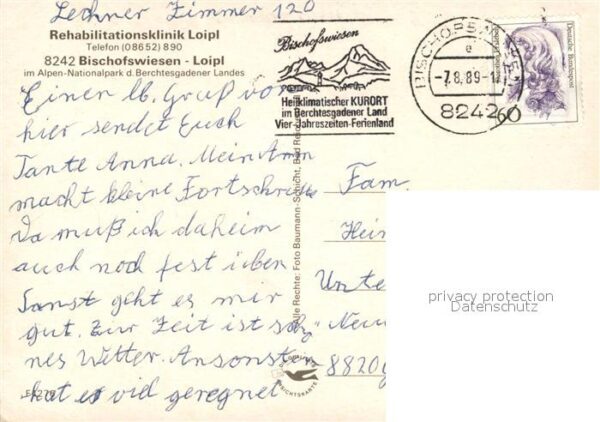 Lechner Zimmer 120
Rehabilitationsklinik Loipl
Telefon (08652) 890
8242 Bischofswiesen - Loipl
im Alpen-Nationalpark d. Berchtesgadener Landes
Einen lb. Gruß von
hier sendet Euch
Tante Anna. Mein Arm
macht kleine Fortschritte
Da muß ich daheim
auch noch fest üben
Sonst geht es mir
gut. Zur Zeit ist schö
nes Wetter. Ansonsten
hat es viel geregnet
Bischofswiesen
Heilklimatischer KURORT
im Berchtesgadener Land
Vier-Jahreszeiten-Ferienland
BISCHOFSWIESEN
e
-7.8.89-1
8242
Deutsche Bundespost
60
Alle Rechte: Foto Baumann-Schicht, Bad Reichenhall
Fam.
Hein
Unte
Neu
8820
privacy protection
Datenschutz